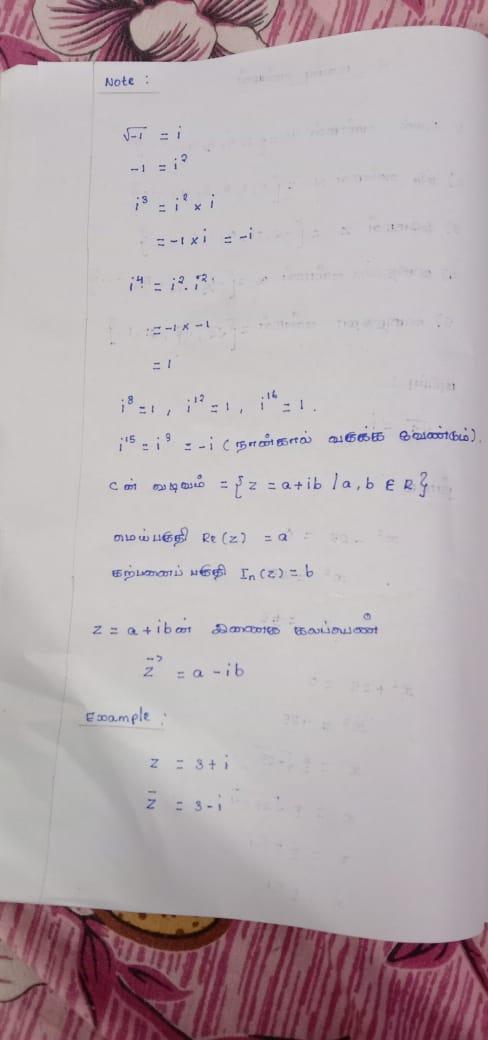 Note :
√-1 = i
-1 = i²
i³ = i² × i
= -1 × i = -i
i⁴ = i² . i²
= -1 × -1
= 1
i⁸ = 1 , i¹² = 1 , i¹⁶ = 1 .
i¹⁵ = i³ = -i ( நான்கால் வகுக்க வேண்டும் ) .
C ன் வடிவம் = { z = a + ib / a , b ∈ R }
மெய்பகுதி Re (z) = a
கற்பனைப் பகுதி In (z) = b
z = a + ib ன் இணைக் கலப்பெண்
z̄ = a - ib
Example :
z = 3 + i
z̄ = 3 - i